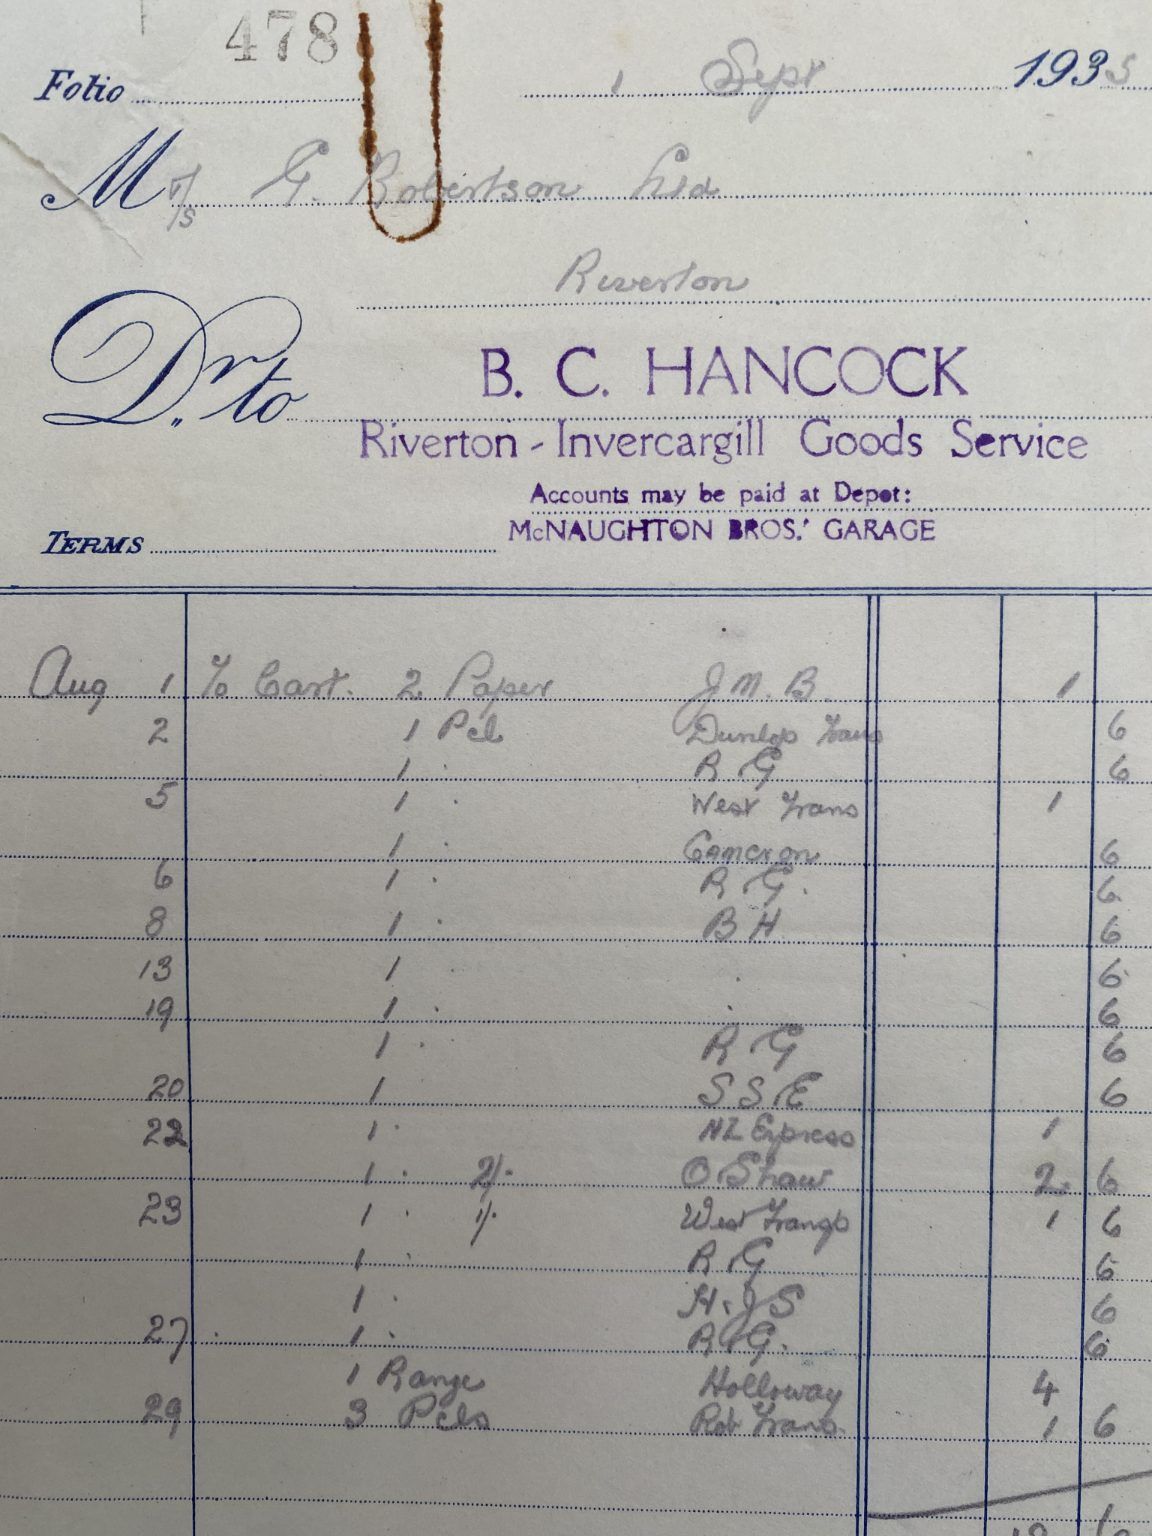 478
Folio 1 Sept 1935
M r/s G. Robertson Ltd
Riverton
Dr. to B. C. HANCOCK
Riverton - Invercargill Goods Service
Accounts may be paid at Depot:
TERMS McNAUGHTON BROS.' GARAGE
Aug 1 To Cart. 2 Paper J M. B. 1
2 1 Pcl Dunlop Trans 6
1 " R G 6
5 1 " West Trans 1
1 " Cameron 6
6 1 " R G. 6
8 1 " B H 6
13 1 " " 6
19 1 " " 6
1 " R G 6
20 1 S S E 6
22 1 " NZ Express 1
1 " 2/- O Shaw 2 6
23 1 " 1/- West Transp 1 6
1 " R G 6
1 " H. J S 6
27 1 " R G. 6
1 Range Holloway 4
29 3 Pcls Rob Trans. 1 6